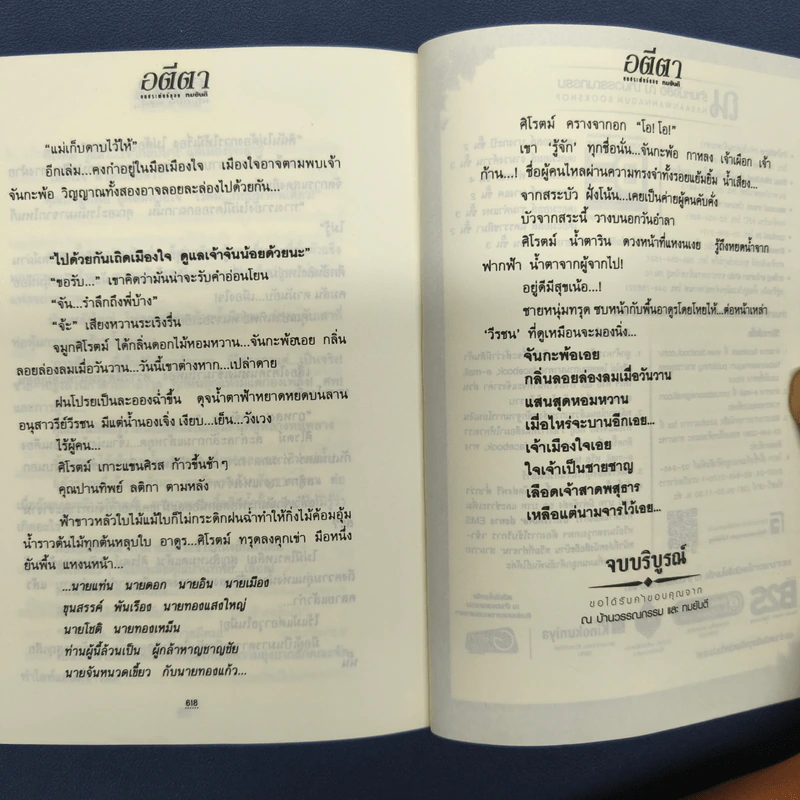 อตีตา
บทประพันธ์ของ ทมยันตี
"แม่เก็บดาบไว้ให้"
อีกเล่ม...คงกำอยู่ในมือเมืองใจ เมืองใจอาจตามพบเจ้า
จันกะพ้อ วิญญาณทั้งสองอาจลอยละล่องไปด้วยกัน...
"ไปด้วยกันเถิดเมืองใจ ดูแลเจ้าจันน้อยด้วยนะ"
"ขอรับ..." เขาคิดว่ามันน่าจะรับคำอ่อนโยน
"จัน...รำลึกถึงพี่บ้าง"
"จ้ะ" เสียงหวานระเริงรื่น
จมูกศิโรตม์ ได้กลิ่นดอกไม้หอมหวาน...จันกะพ้อเอย กลิ่น
ลอยล่องลมเมื่อวันวาน...วันนี้เขาต่างหาก...เปล่าดาย
ฝนโปรยเป็นละอองฉ่ำชื้น ดุจน้ำตาฟ้าหยาดหยดบนลาน
อนุสาวรีย์วีรชน มีแต่น้ำนองเจิ่ง เงียบ...เย็น...วังเวง
ไร้ผู้คน...
ศิโรตม์ เกาะแขนศิรส ก้าวขึ้นช้าๆ
คุณปานทิพย์ ลติกา ตามหลัง
ฟ้าขาวหลัวใบไม้แม้ใบก็ไม่กระดิกฝนฉ่ำทำให้กิ่งไม้ค้อมอุ้ม
น้ำราวต้นไม้ทุกต้นหลุบใบ อาดูร...ศิโรตม์ ทรุดลงคุกเข่า มือหนึ่ง
ยันพื้น แหงนหน้า...
...นายแท่น นายดอก นายอิน นายเมือง
ขุนสรรค์ พันเรือง นายทองแสงใหญ่
นายโชติ นายทองเหม็น
ท่านผู้นี้ล้วนเป็น ผู้กล้าหาญชาญชัย
นายจันหนวดเขี้ยว กับนายทองแก้ว...
618
อตีตา
บทประพันธ์ของ ทมยันตี
ศิโรตม์ ครางจากอก "โอ! โอ!"
เขา 'รู้จัก' ทุกชื่อนั่น...จันกะพ้อ กาหลง เจ้าเผือก เจ้า
ก้าน...! ชื่อผู้คนไหลผ่านความทรงจำทั้งรอยแย้มยิ้ม น้ำเสียง...
จากสระบัว ฝั่งโน้น...เคยเป็นค่ายผู้คนคับคั่ง
บัวจากสระนี้ วางบนอกวันอำลา
ศิโรตม์ น้ำตาริน ดวงหน้าที่แหงนเงย รู้ถึงหยดน้ำจาก
ฟากฟ้า น้ำตาจากผู้จากไป!
อยู่ดีมีสุขเน้อ...!
ชายหนุ่มทรุด ซบหน้ากับพื้นอาดูรโดยโหยไห้...ต่อหน้าเหล่า
'วีรชน' ที่ดูเหมือนจะมองนิ่ง...
จันกะพ้อเอย
กลิ่นลอยล่องลมเมื่อวันวาน
แสนสุดหอมหวาน
เมื่อไหร่จะบานอีกเอย...
เจ้าเมืองใจเอย
ใจเจ้าเป็นชายชาญ
เลือดเจ้าสาดพสุธาร
เหลือแต่นามจารไว้เอย...
จบบริบูรณ์
ขอได้รับคำขอบคุณจาก
ณ บ้านวรรณกรรม และ ทมยันตี
B2S
Kinokuniya